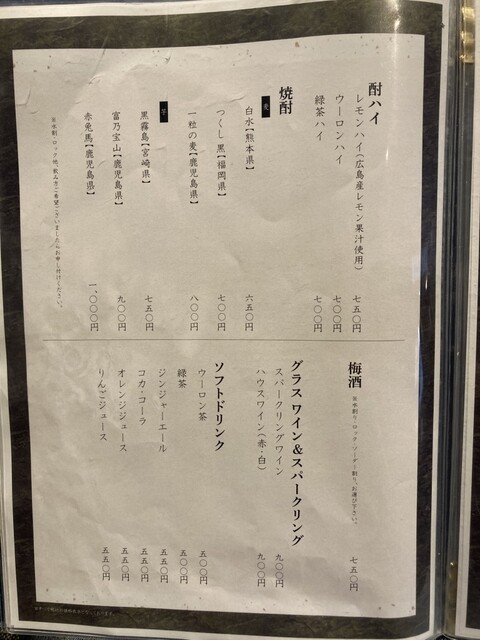 酎ハイ
レモンハイ(広島産レモン果汁使用) 七五〇円
ウーロンハイ 七〇〇円
緑茶ハイ 七〇〇円
焼酎
麦
白水【熊本県】 六五〇円
つくし 黒【福岡県】 七〇〇円
一粒の麦【鹿児島県】 八〇〇円
芋
黒霧島【宮崎県】 七五〇円
富乃宝山【鹿児島県】 九〇〇円
赤兎馬【鹿児島県】 一、〇〇〇円
※水割・ロック他、飲み方ご希望ございましたらお申し付けください。
梅酒
※水割り・ロック・ソーダー割り、お選び下さい。
七五〇円
グラス ワイン&スパークリング
スパークリングワイン 九〇〇円
ハウスワイン(赤・白) 九〇〇円
ソフトドリンク
ウーロン茶 五〇〇円
緑茶 五〇〇円
ジンジャーエール 五五〇円
コカ・コーラ 五五〇円
オレンジジュース 五五〇円
りんごジュース 五五〇円